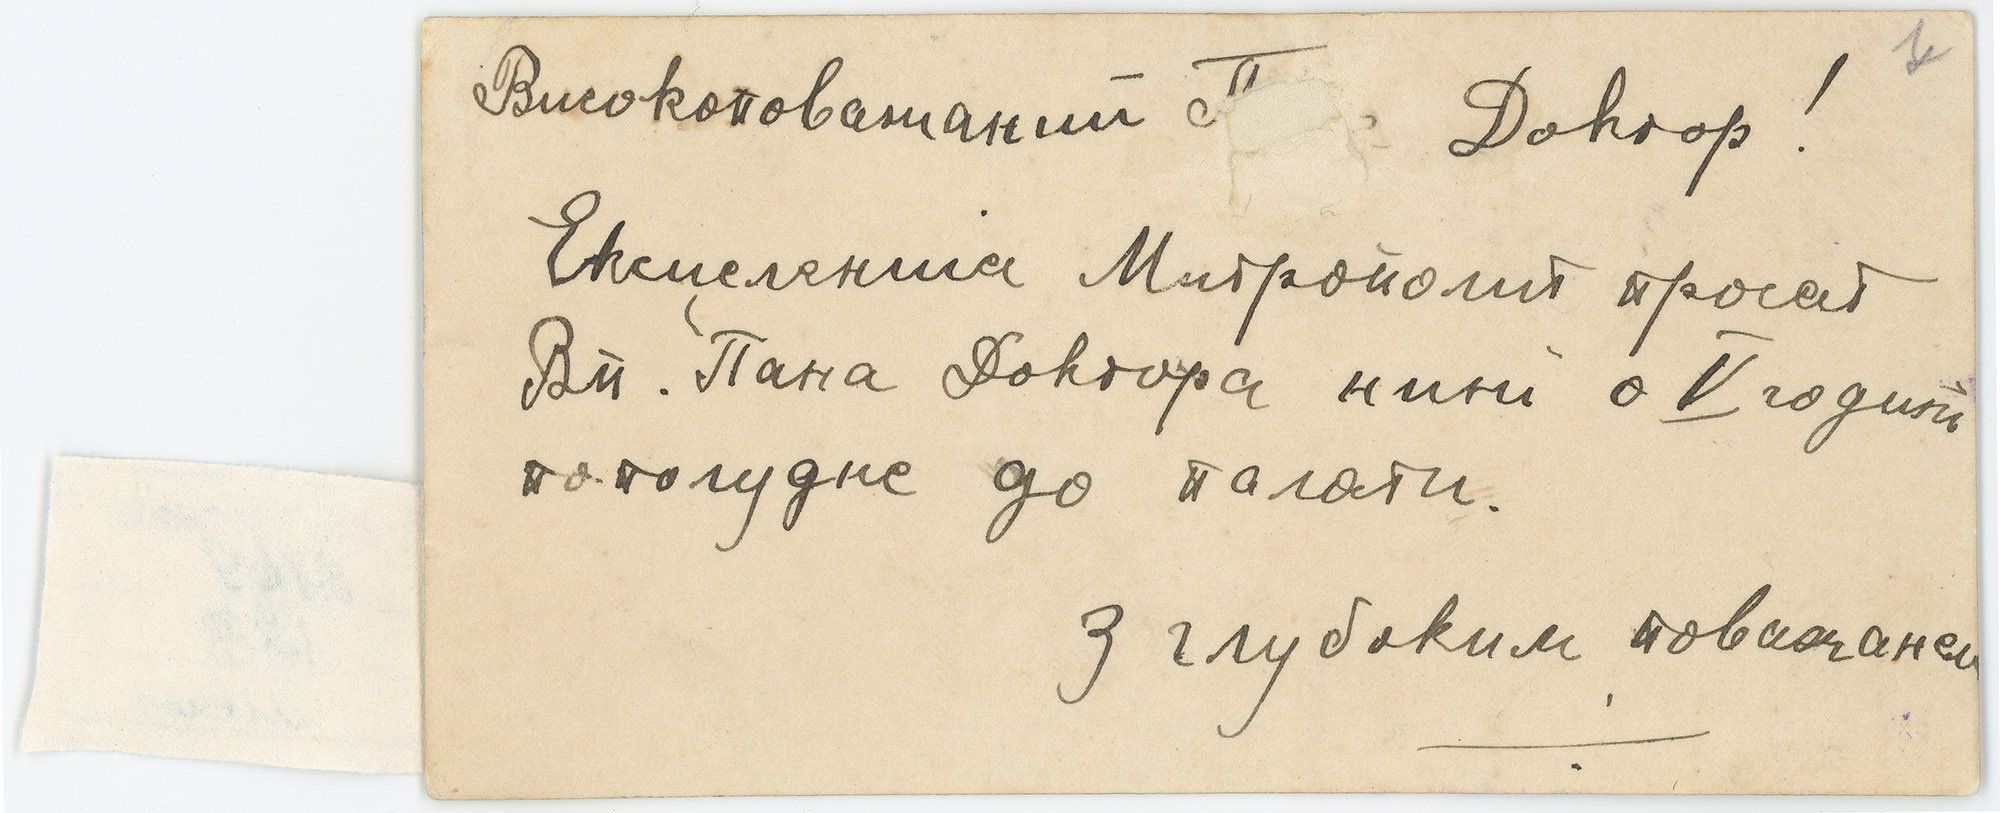 Високоповажаний П Доктор!
Ексцеленция Митрополит просят
Вп. Пана Доктора нині о V годині
пополудне до палати.
З глубоким поважанєм